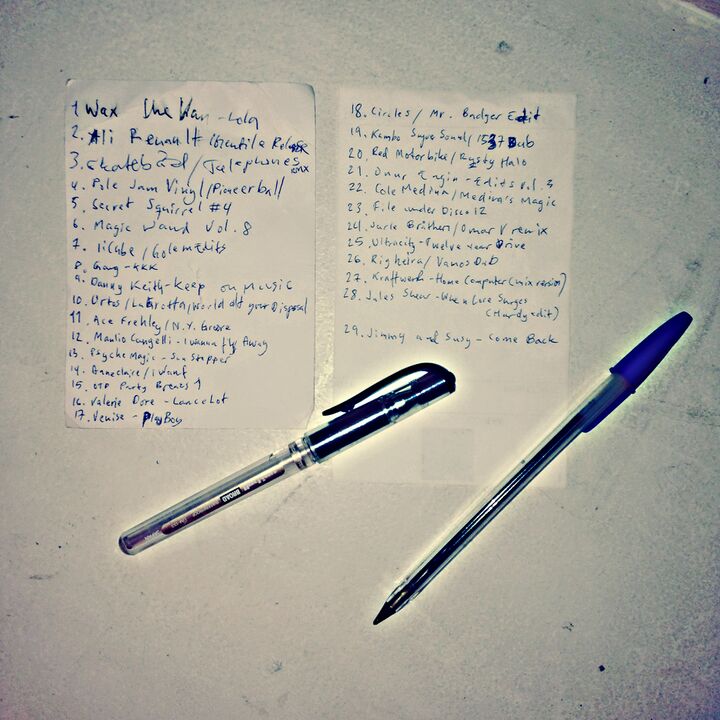 1 Wax the Van - Lola
2. Ali Renault
3. Skatebård / Telephones rmx
4. Pole Jam Vinyl / Pioneerball
5. Secret Squirrel #4
6 Magic Wand Vol. 8
7. I:Cube / Golem Edits
8. Gang - KKK
9. Danny Keith - Keep on Music
10. / World at your Disposal
11. Ace Frehley / N.Y. Groove
12. Manlio Cangelli - I wanna fly Away
13. Psyche Magic - Sun Stopper
14. Anneclaire / I Want
15. OTP Party Breaks 1
16. Valerie Dore - Lancelot
17. Venise - PlayBoy
18. Circles / Mr. Badger Edit
19. Kambo Super Sound / Dub
20. Red Motorbike / Rusty Halo
21. Onur Engin - Edits Vol. 3
22. Cole Medina / Medina's Magic
23. File under Disco 12
24. Jarle Bråthen / Omar V remix
25. Ultracity - Twelve Year Drive
26. Righeira / Vamos Dub
27. Kraftwerk - Home Computer (mix version)
28. Jules Shear - When Love Surges
(Hardy edit)
29. Jimmy and Susy - Come Back
BROAD